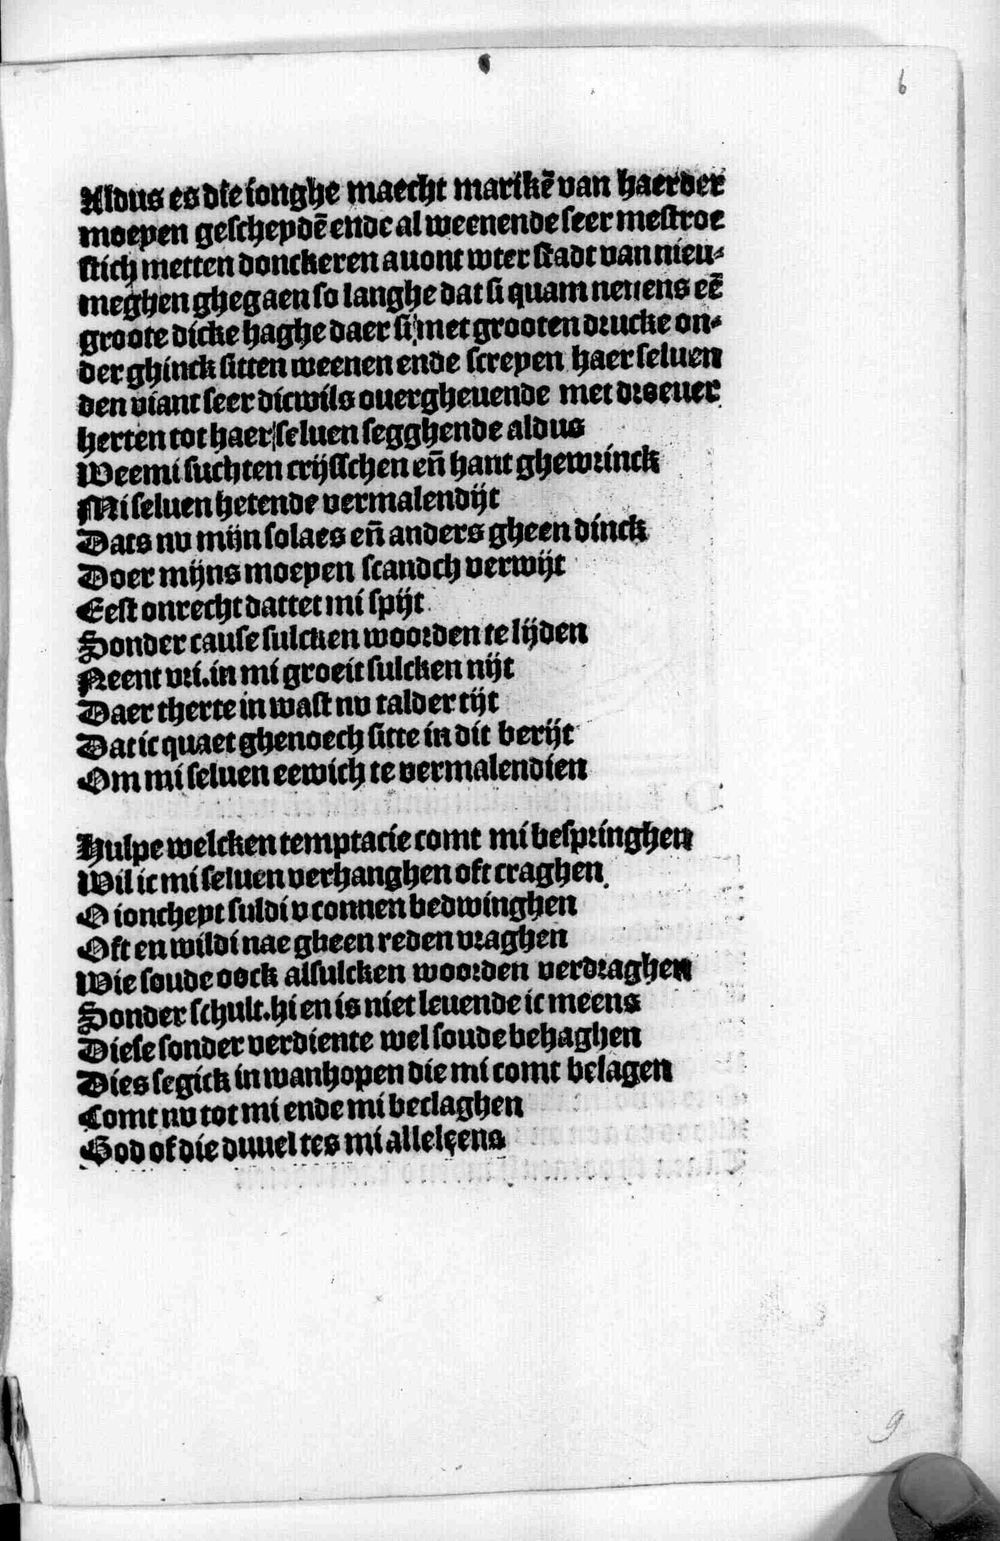 6
Aldus es die ionghe maecht marikē van haerder
moeyen gescheydē ende al weenende seer mestroe
stich metten donckeren auont wter stadt van nieu⸗
meghen ghegaen so langhe dat si quam neuens eē
groote dicke haghe daer si met grooten drucke on⸗
der ghinck sitten weenen ende screyen haer seluen
den viant seer dicwils ouergheuende met droeuer
herten tot haer seluen segghende aldus
Weemi suchten crijsschen eñ hant ghewrinck
Mi seluen hetende vermalendijt
Dats nv mijn solaes eñ anders gheen dinck
Doer mijns moeyen scandch verwijt
Eest onrecht dattet mi spijt
Sonder cause sulcken woorden te lijden
Neent vri. in mi groeit sulcken nijt
Daer therte in wast nv talder tijt
Dat ic quaet ghenoech sitte in dit berijt
Om mi seluen eewich te vermalendien
Hulpe welcken temptacie comt mi bespringhen
Wil ic mi seluen verhanghen oft craghen
O ioncheyt suldi v connen bedwinghen
Oft en wildi nae gheen reden vraghen
Wie soude oock alsulcken woorden verdraghen
Sonder schult. hi en is niet leuende ic meens
Diese sonder verdiente wel soude behaghen
Dies segick in wanhopen die mi comt belagen
Comt nv tot mi ende mi beclaghen
God of die duuel tes mi alleleens
9